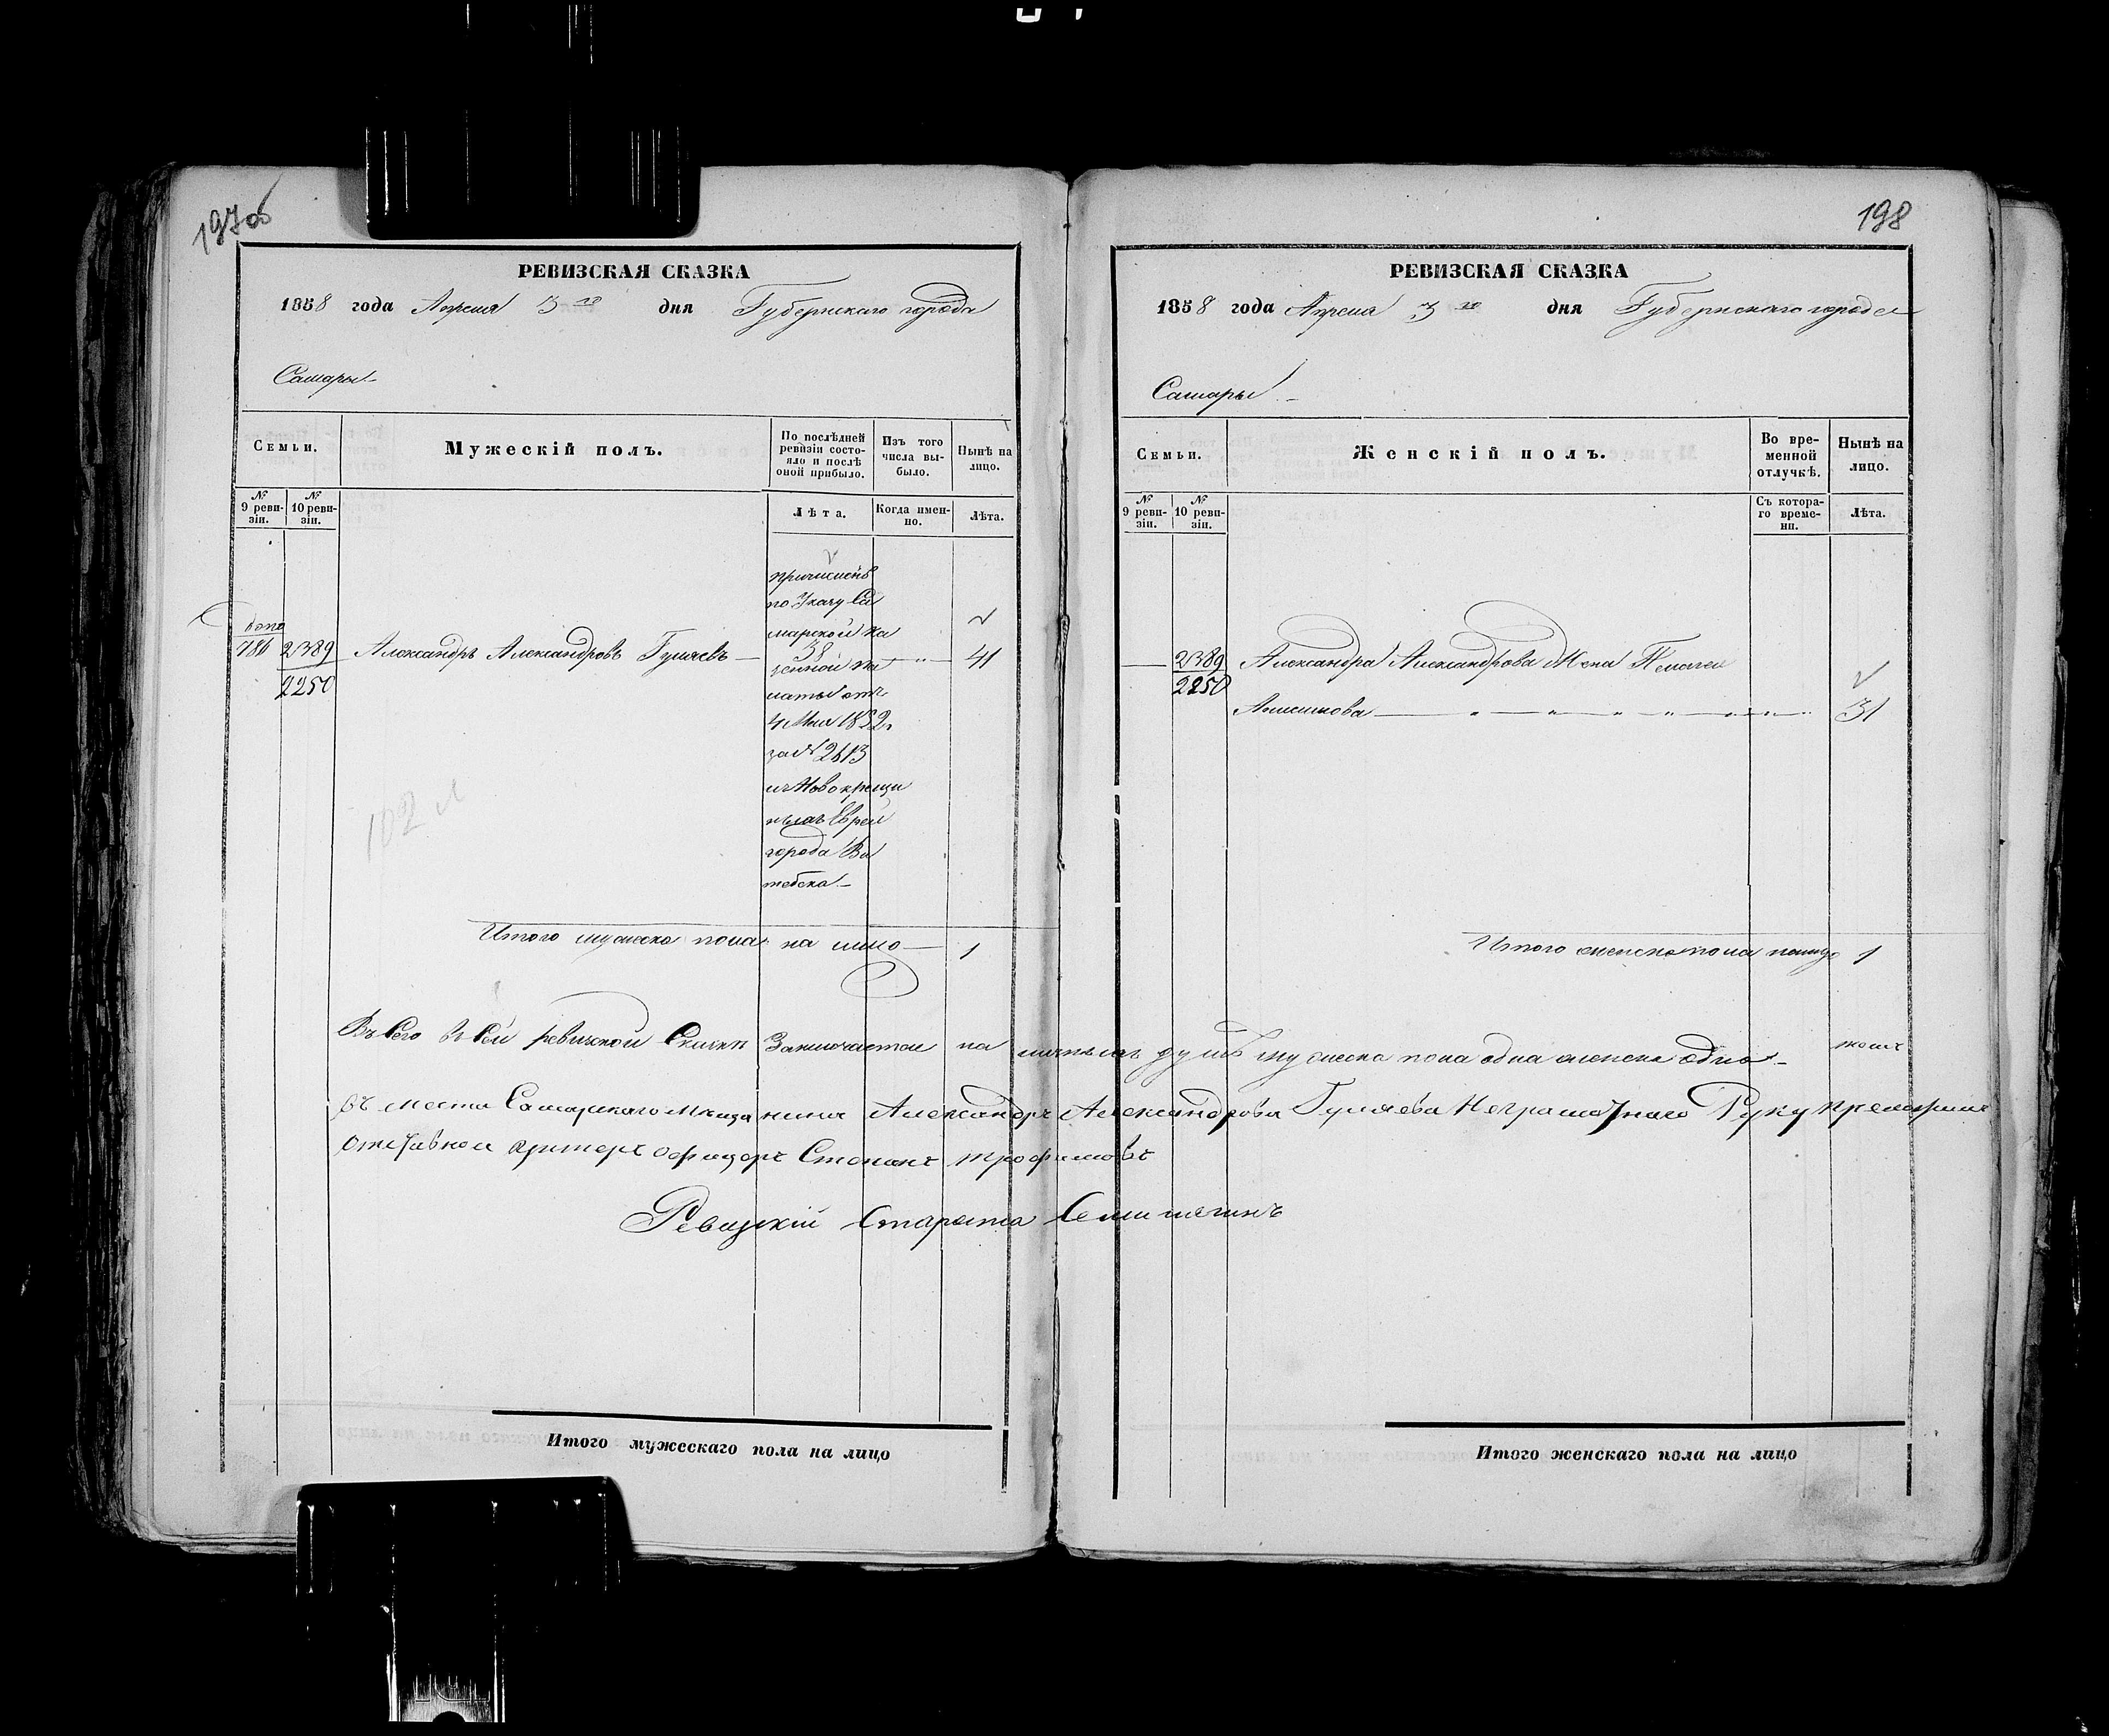 197об
РЕВИЗСКАЯ СКАЗКА
1858 года Апреля 3 го дня Губернскаго города
Самары
Семьи.
Мужескій полъ.
По послѣдней ревизіи состояло и послѣ оной прибыло.
Изъ того числа выбыло.
Нынѣ на лицо.
№ 9 ревизіи.
№ 10 ревизіи.
Лѣта.
Когда именно.
Лѣта.
причислен
по Указу Са
марской ка
зенной па
латы отъ
4 Мая 1852 г.
за № 2613
изъ Новокреще
ныхъ Еврей
города Ви
тебска
786 2389 Александръ Александровъ Гуляевъ 41
2250
102
Итого мужеска пола на лицо 1
Итого мужескаго пола на лицо
198
РЕВИЗСКАЯ СКАЗКА
1858 года Апреля 3 го дня Губернскаго города
Самары
Семьи.
Женскій полъ.
Во временной отлучкѣ.
Нынѣ на лицо.
№ 9 ревизіи.
№ 10 ревизіи.
Съ котораго времени.
Лѣта.
2389 Александра Александрова Жена
2250
31
Итого женска пола налицо 1
Въ сего въ сей ревизской Сказки Заключается на личныхъ душъ мужеска пола одна женска одна
въ место Самарскаго Мещанина Александръ Александрова Гуляева Неграмотнаго Руку
отставной унтеръ офицеръ Степанъ Трофимовъ
Ревизкій Староста
Итого женскаго пола на лицо